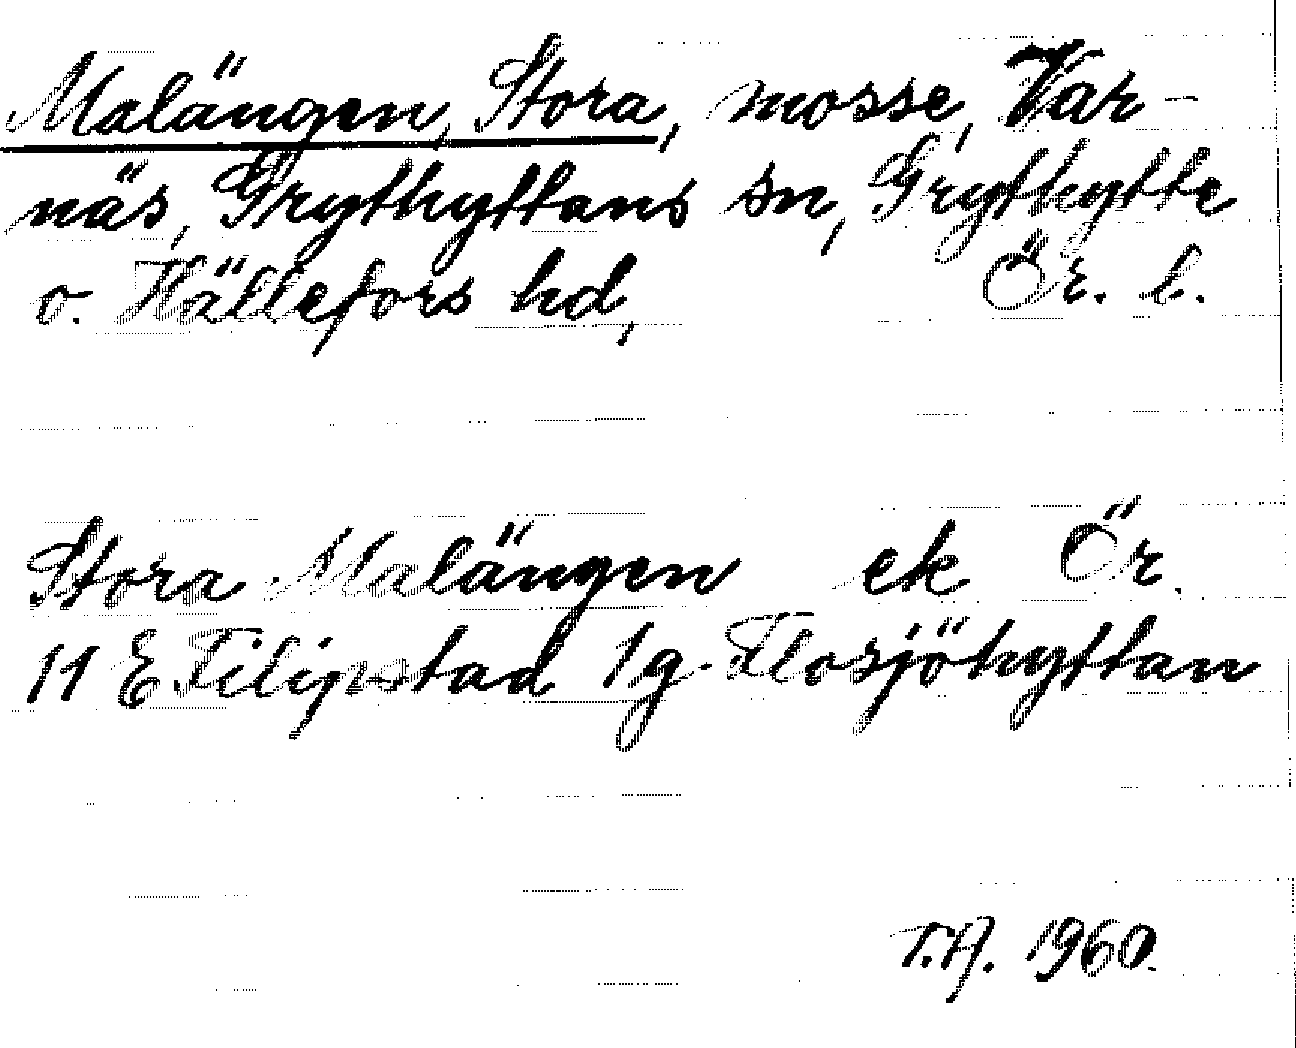 Malängen, Stora, mosse, Var-
näs, Grythyttans sn, Grythytte
o. Hällefors hd, Ör. l.
Stora Malängen ek Ör.
11 E Filipstad 1g Flosjöhyttan
T.A. 1960.